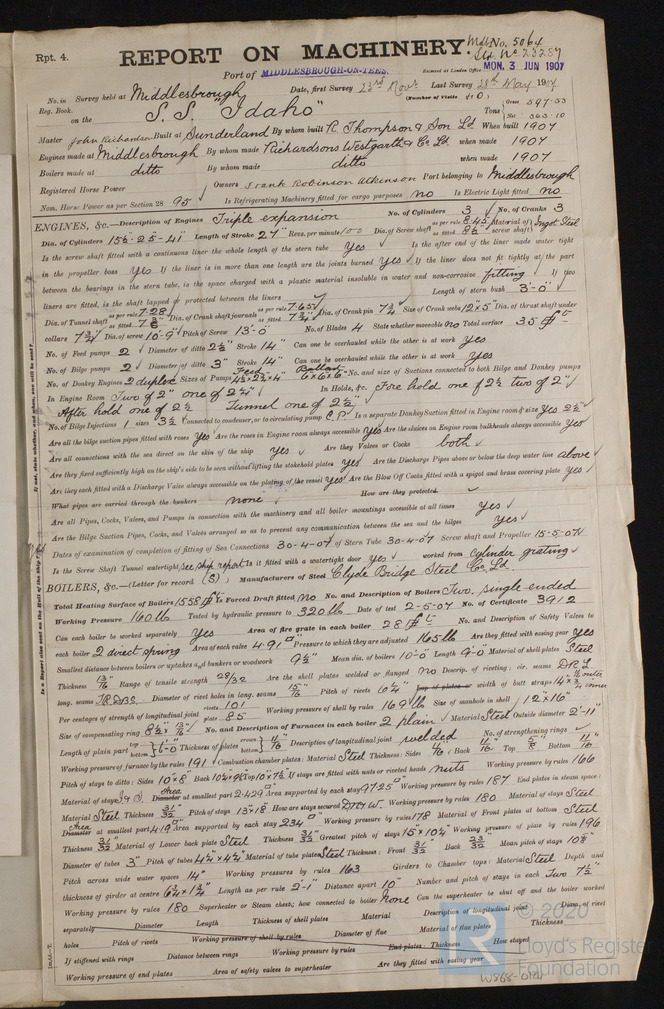 Rpt. 4.
REPORT ON MACHINERY.
No. 5064
Port of MIDDLESBROUGH-ON-TEES.
Received at London Office MON. 3 JUN 1907
No. in Survey held at Middlesbrough Date, first Survey 23rd Nov. Last Survey 28th May 1907
Reg. Book. (Number of Visits
on the S.S. "Idaho" Tons Gross 597.33 Net 303.10
Master John Richardson Built at Sunderland By whom built R. Thompson & Son Ld. When built 1907
Engines made at Middlesbrough By whom made Richardsons Westgarth & Co Ld when made 1907
Boilers made at ditto By whom made ditto when made 1907
Registered Horse Power Owners Frank Robinson Atkinson Port belonging to Middlesbrough
Nom. Horse Power as per Section 28 95 Is Refrigerating Machinery fitted for cargo purposes No Is Electric Light fitted no
ENGINES, &c.—Description of Engines Triple expansion No. of Cylinders 3 No. of Cranks 3
Dia. of Cylinders 15½-25-41 Length of Stroke 27" Revs. per minute 100 Dia. of Screw shaft as per rule 8.45 as fitted 8½ Material of screw shaft Ingot Steel
Is the screw shaft fitted with a continuous liner the whole length of the stern tube Yes Is the after end of the liner made water tight
in the propeller boss Yes If the liner is in more than one length are the joints burned Yes If the liner does not fit tightly at the part
between the bearings in the stern tube, is the space charged with a plastic material insoluble in water and non-corrosive fitting If two
liners are fitted, is the shaft lapped or protected between the liners Length of stern bush 3'-0"
Dia. of Tunnel shaft as per rule 7.28 as fitted 7⅜ Dia. of Crank shaft journals as per rule 7.65 as fitted 7¾ Dia. of Crank pin 7¾ Size of Crank webs 12"x5" Dia. of thrust shaft under
collars 7¾ Dia. of screw 10-9 Pitch of Screw 13-0 No. of Blades 4 State whether moveable No Total surface 35 ft
No. of Feed pumps 2 Diameter of ditto 2½ Stroke 14" Can one be overhauled while the other is at work Yes
No. of Bilge pumps 2 Diameter of ditto 3" Stroke 14" Can one be overhauled while the other is at work Yes
No. of Donkey Engines 2 duplex Sizes of Pumps Feed 4½x2¾x4" Ballast 6x6x6" No. and size of Suctions connected to both Bilge and Donkey pumps
In Engine Room Two of 2" one of 2¼" In Holds, &c. Fore hold one of 2½ two of 2"
After hold one of 2½ Tunnel one of 2½"
No. of Bilge Injections 1 sizes 3½ Connected to condenser, or to circulating pump C.P. Is a separate Donkey Suction fitted in Engine room & size Yes 2½"
Are all the bilge suction pipes fitted with roses Yes Are the roses in Engine room always accessible Yes Are the sluices on Engine room bulkheads always accessible Yes
Are all connections with the sea direct on the skin of the ship Yes Are they Valves or Cocks both
Are they fixed sufficiently high on the ship's side to be seen without lifting the stokehold plates Yes Are the Discharge Pipes above or below the deep water line above
Are they each fitted with a Discharge Valve always accessible on the plating of the vessel Yes Are the Blow Off Cocks fitted with a spigot and brass covering plate Yes
What pipes are carried through the bunkers none How are they protected
Are all Pipes, Cocks, Valves, and Pumps in connection with the machinery and all boiler mountings accessible at all times Yes
Are the Bilge Suction Pipes, Cocks, and Valves arranged so as to prevent any communication between the sea and the bilges Yes
Dates of examination of completion of fitting of Sea Connections 30-4-07 of Stern Tube 30-4-07 Screw shaft and Propeller 15-5-07
Is the Screw Shaft Tunnel watertight see ship report Is it fitted with a watertight door yes worked from Cylinder grating
BOILERS, &c.—(Letter for record (S)) Manufacturers of Steel Clyde Bridge Steel Co. Ld.
Total Heating Surface of Boilers 1558 ft Is Forced Draft fitted No No. and Description of Boilers Two, single-ended
Working Pressure 160 lb Tested by hydraulic pressure to 320 lb Date of test 2-5-07 No. of Certificate 3912
Can each boiler be worked separately Yes Area of fire grate in each boiler 28 ft No. and Description of Safety Valves to
each boiler 2 direct spring Area of each valve 4.91 Pressure to which they are adjusted 165 lb Are they fitted with easing gear Yes
Smallest distance between boilers or uptakes and bunkers or woodwork 9½" Mean dia. of boilers 10-0 Length 9-0 Material of shell plates Steel
Thickness 13/16 Range of tensile strength 28/32 Are the shell plates welded or flanged No Descrip. of riveting: cir. seams D.R.L
long. seams T.R.D.B.S. Diameter of rivet holes in long. seams 15/16 Pitch of rivets 6¼ Lap of plates or width of butt straps
Per centages of strength of longitudinal joint rivets 101 plate 85 Working pressure of shell by rules 169 lb Size of manhole in shell 12"x16"
Size of compensating ring No. and Description of Furnaces in each boiler 2 plain Material Steel Outside diameter 2'-11"
Length of plain part top bottom 6'-0" Thickness of plates Description of longitudinal joint welded No. of strengthening rings
Working pressure of furnace by the rules 191 Combustion chamber plates: Material Steel Thickness: Sides 11/16 Back 11/16 Top 5/8 Bottom 11/16
Pitch of stays to ditto: Sides 10"x8" If stays are fitted with nuts or riveted heads nuts Working pressure by rules 166
Material of stays Area at smallest part 2.429 Area supported by each stay Working pressure by rules 187 End plates in steam space:
Material Steel Thickness 31/32 Pitch of stays 13"x18" How are stays secured Working pressure by rules 180 Material of stays Steel
Area at smallest part 4.19 Area supported by each stay 234 Working pressure by rules 178 Material of Front plates at bottom Steel
Thickness 31/32 Material of Lower back plate Steel Thickness 31/32 Greatest pitch of stays 15x10¼ Working pressure of plate by rules 196
Diameter of tubes 3" Pitch of tubes 4¼x4¼ Material of tube plates Steel Thickness: Front 31/32 Back 23/32 Mean pitch of stays 10⅝
Pitch across wide water spaces 14" Working pressures by rules 163 Girders to Chamber tops: Material Steel Depth and
thickness of girder at centre 6¾x1¾ Length as per rule 2'-1" Distance apart 10" Number and pitch of stays in each Two 7½
Working pressure by rules 180 Superheater or Steam chest; how connected to boiler None Can the superheater be shut off and the boiler worked
separately Diameter Length Thickness of shell plates Material Description of longitudinal joint Diam. of rivet
holes Pitch of rivets Working pressure of shell by rules Diameter of flue Material of flue plates Thickness
If stiffened with rings Distance between rings Working pressure by rules End plates: Thickness How stayed
Working pressure of end plates Area of safety valves to superheater Are they fitted with easing gear
© 2020
Lloyd's Register
Foundation
W568-0194